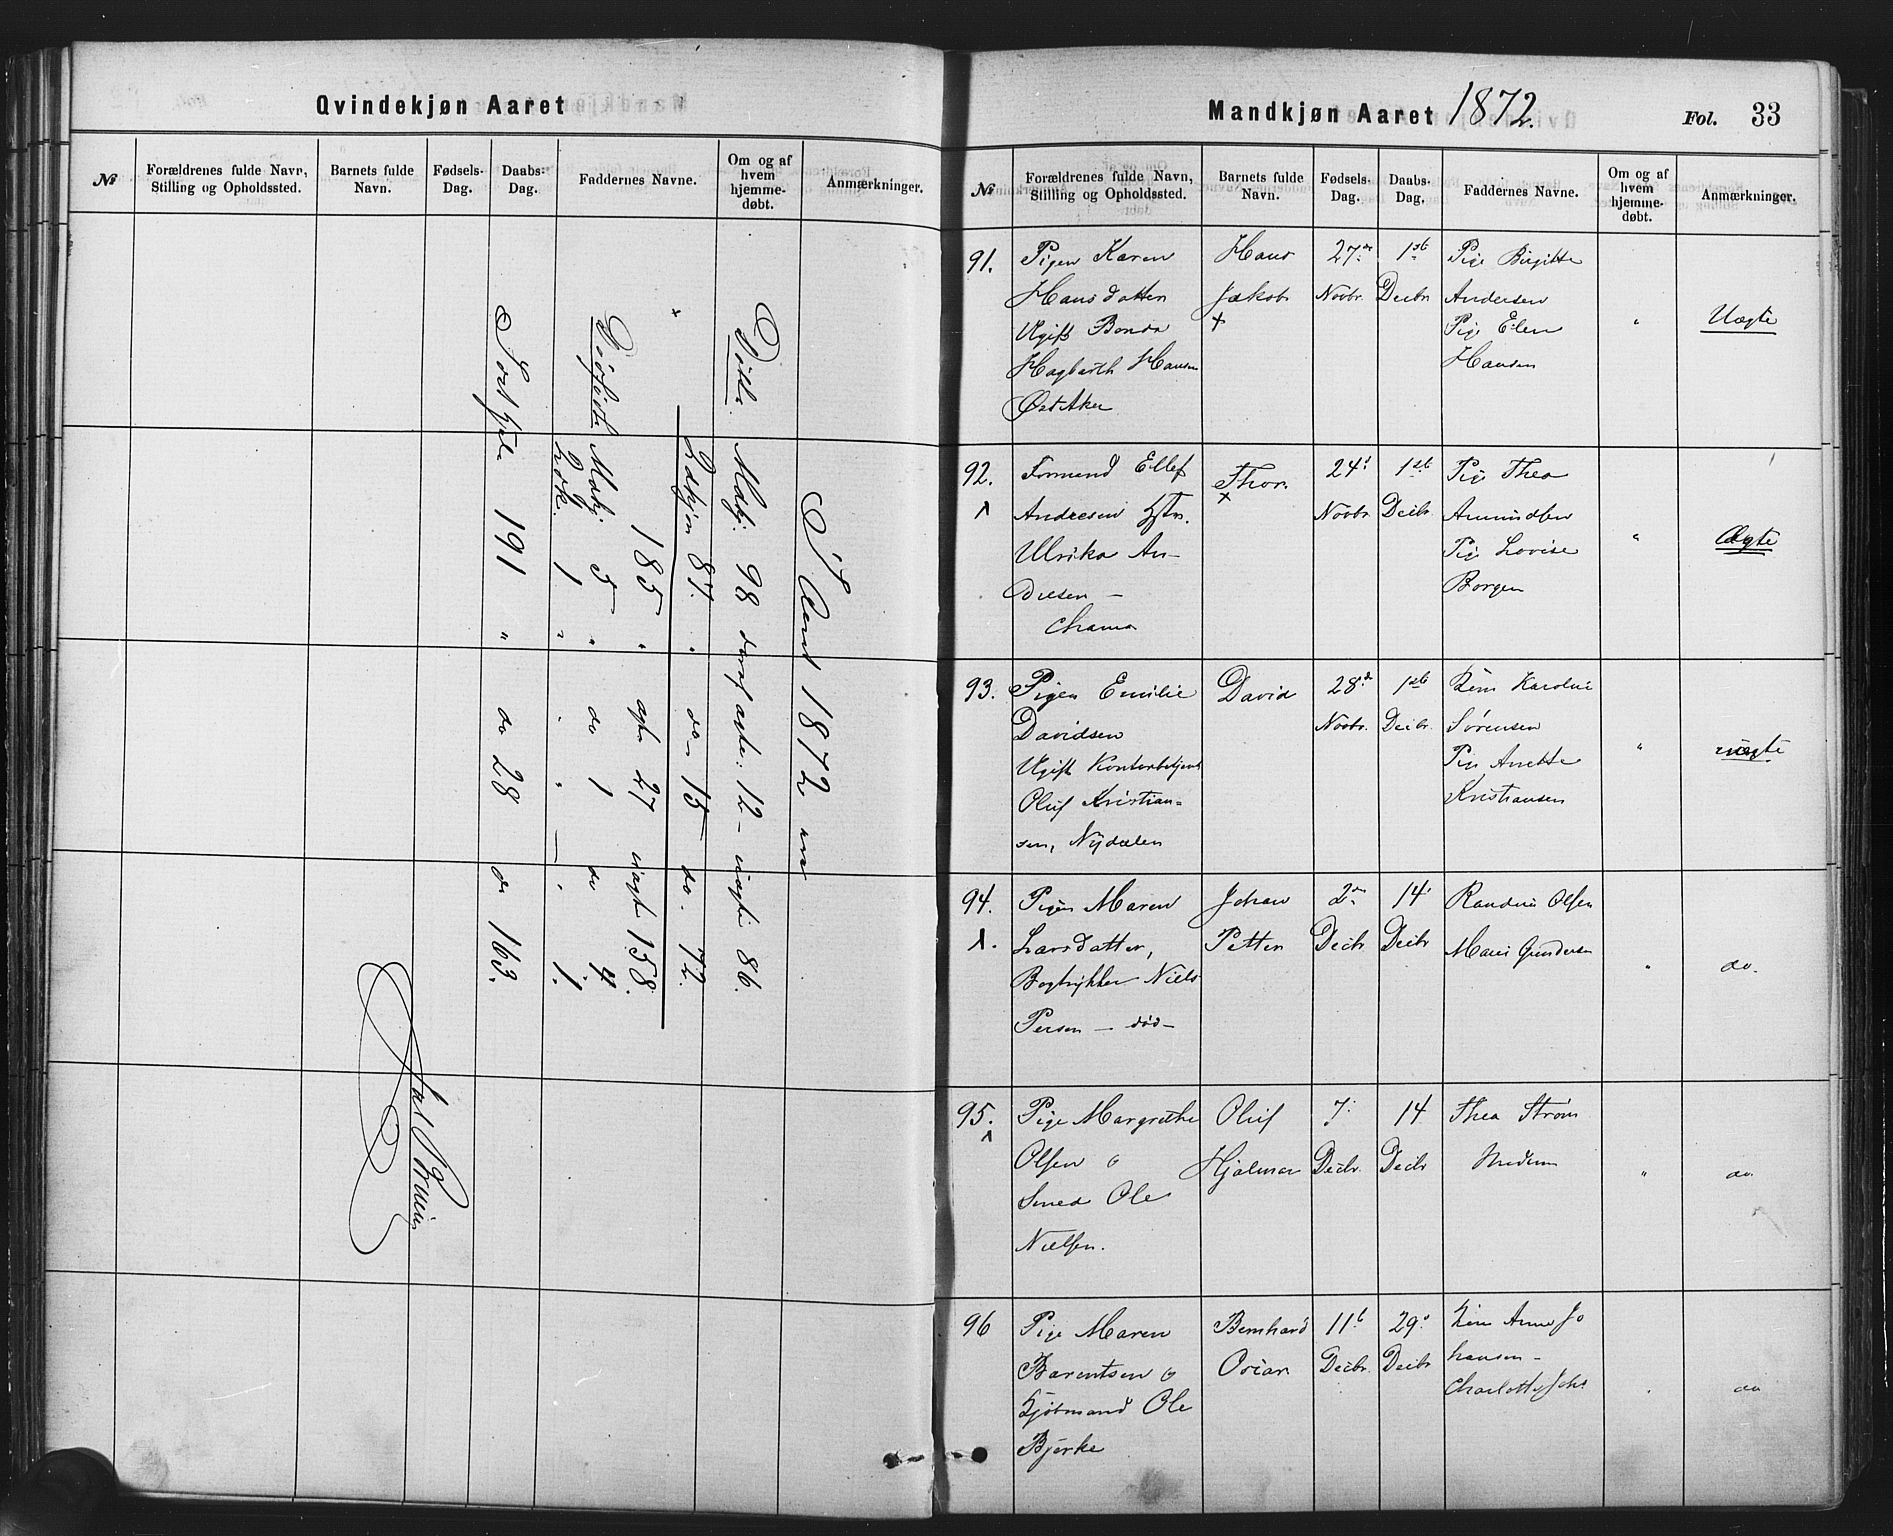 Qvindekjøn Aaret
№
Forældrenes fulde Navn,
Stilling og Opholdssted.
Barnets fulde
Navn.
Fødsels-
Dag.
Daabs-
Dag.
Faddernes Navne.
Om og af
hvem
hjemme-
døbt.
Anmærkninger.
I Aaret 1872 ere
Døbte. Mdkj. 98 deraf ægte: 12 – uægte 86.
Qdkjøn 87. " do – 15 – do. 72.
185 " ægte 27 uægt 158.
Døfødt Mdkj 5 " do 1 do 4.
Qvk. 1 " " — " 1.
191 " do 28 do 163.
Mandkjøn Aaret 1872.
Fol. 33
№
Forældrenes fulde Navn,
Stilling og Opholdssted.
Barnets fulde
Navn.
Fødsels-
Dag.
Daabs-
Dag.
Faddernes Navne.
Om og af
hvem
hjemme-
døbt.
Anmærkninger.
91.
Pigen Karen
Hansdatter
Ugift Bonde
Hagbarth Hansen
Øst Aker
Hans
Jakob
+
27de
Novbr.
1ste
Decbr
Pige Birgitte
Andersen
Pige Elen
Hansen
"
Uægte
92.
Formend Ellef
Andresen Hstr.
Ulrika An-
dresen –
Thor.
+
24d
Novbr.
1ste
Decbr.
Pige Thea
Amundsen
Pige Lovise
Borgen
"
Ægte
93.
Pigen Emilie
Davidsen
Ugift Kontorbetjent
Oluf Kristian-
sen, Nydalen
David
28de
Novbr.
1ste
Decbr.
Karoline
Sørensen
Pige Anette
Kristiansen
"
uægte
94.
Pigen Maren
Larsdatter,
Bogtrykker Niels
Persen – død –
Johan
Petter
2den
Decbr.
14
Decbr
Randine Olsen
Maria Gundersen
"
do.
95.
Pige Margrethe
Olsen o
Smed Ole
Nielsen.
Oluf
Hjalmar
7.
Decbr.
14
Decbr
Thea Strøm
"
do.
96
Pige Maren
Barentsen o
Kjøbmand Ole
Bjerke
Bernhard
Oscar
11te
Decbr.
29
Decbr
Anne Jo
hansen –
"
do